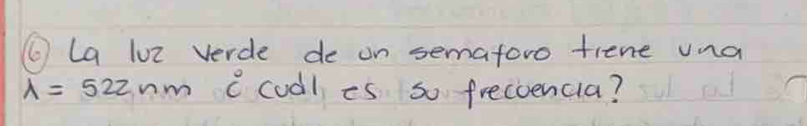 ⑥ La luz verde de un semaforo tiene una
λ = 522 nm ¿cuál es su frecuencia?